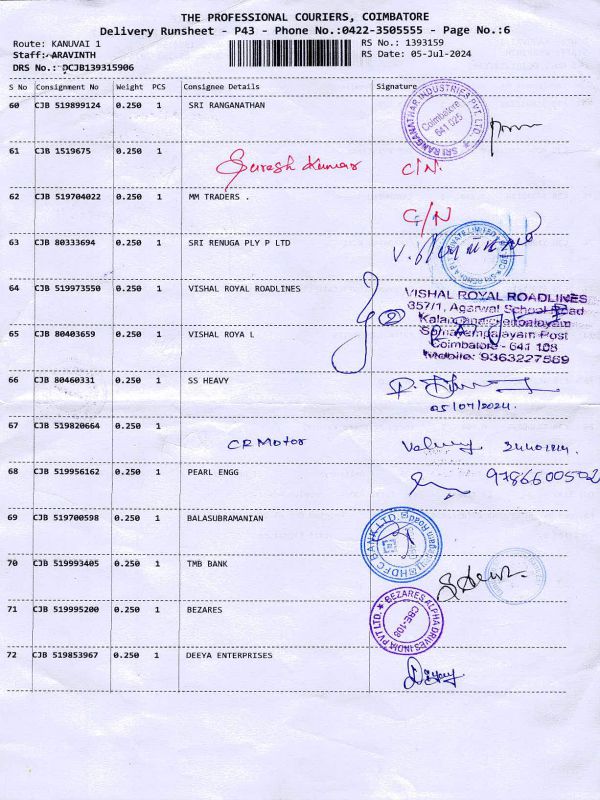 THE PROFESSIONAL COURIERS, COIMBATORE
Delivery Runsheet - P43 - Phone No.:0422-3505555 - Page No.:6
Route: KANUVAI 1 RS No.: 1393159
Staff: ARAVINTH RS Date: 05-Jul-2024
DRS No.: DCJB139315906
S No Consignment No Weight PCS Consignee Details Signature
60 CJB 519899124 0.250 1 SRI RANGANATHAN
SRI RANGANATHAR INDUSTRIES PVT. LTD.
Coimbatore
641 025
61 CJB 1519675 0.250 1
Suresh Kumar C/N.
62 CJB 519704022 0.250 1 MM TRADERS .
C/N
63 CJB 80333694 0.250 1 SRI RENUGA PLY P LTD
64 CJB 519973550 0.250 1 VISHAL ROYAL ROADLINES
VISHAL ROYAL ROADLINES
357/1, Agarwal School Road
65 CJB 80403659 0.250 1 VISHAL ROYA L
Somayampalayam Post
Coimbatore - 641 108
Mobile: 9363227569
66 CJB 80460331 0.250 1 SS HEAVY
05/07/2024.
67 CJB 519820664 0.250 1
CR Motor
68 CJB 519956162 0.250 1 PEARL ENGG
9786600502
69 CJB 519700598 0.250 1 BALASUBRAMANIAN
HDFC BANK LTD.
70 CJB 519993405 0.250 1 TMB BANK
71 CJB 519995200 0.250 1 BEZARES
BEZARES ALPHA DRIVES INDIA PVT LTD.
CBE-108
72 CJB 519853967 0.250 1 DEEYA ENTERPRISES